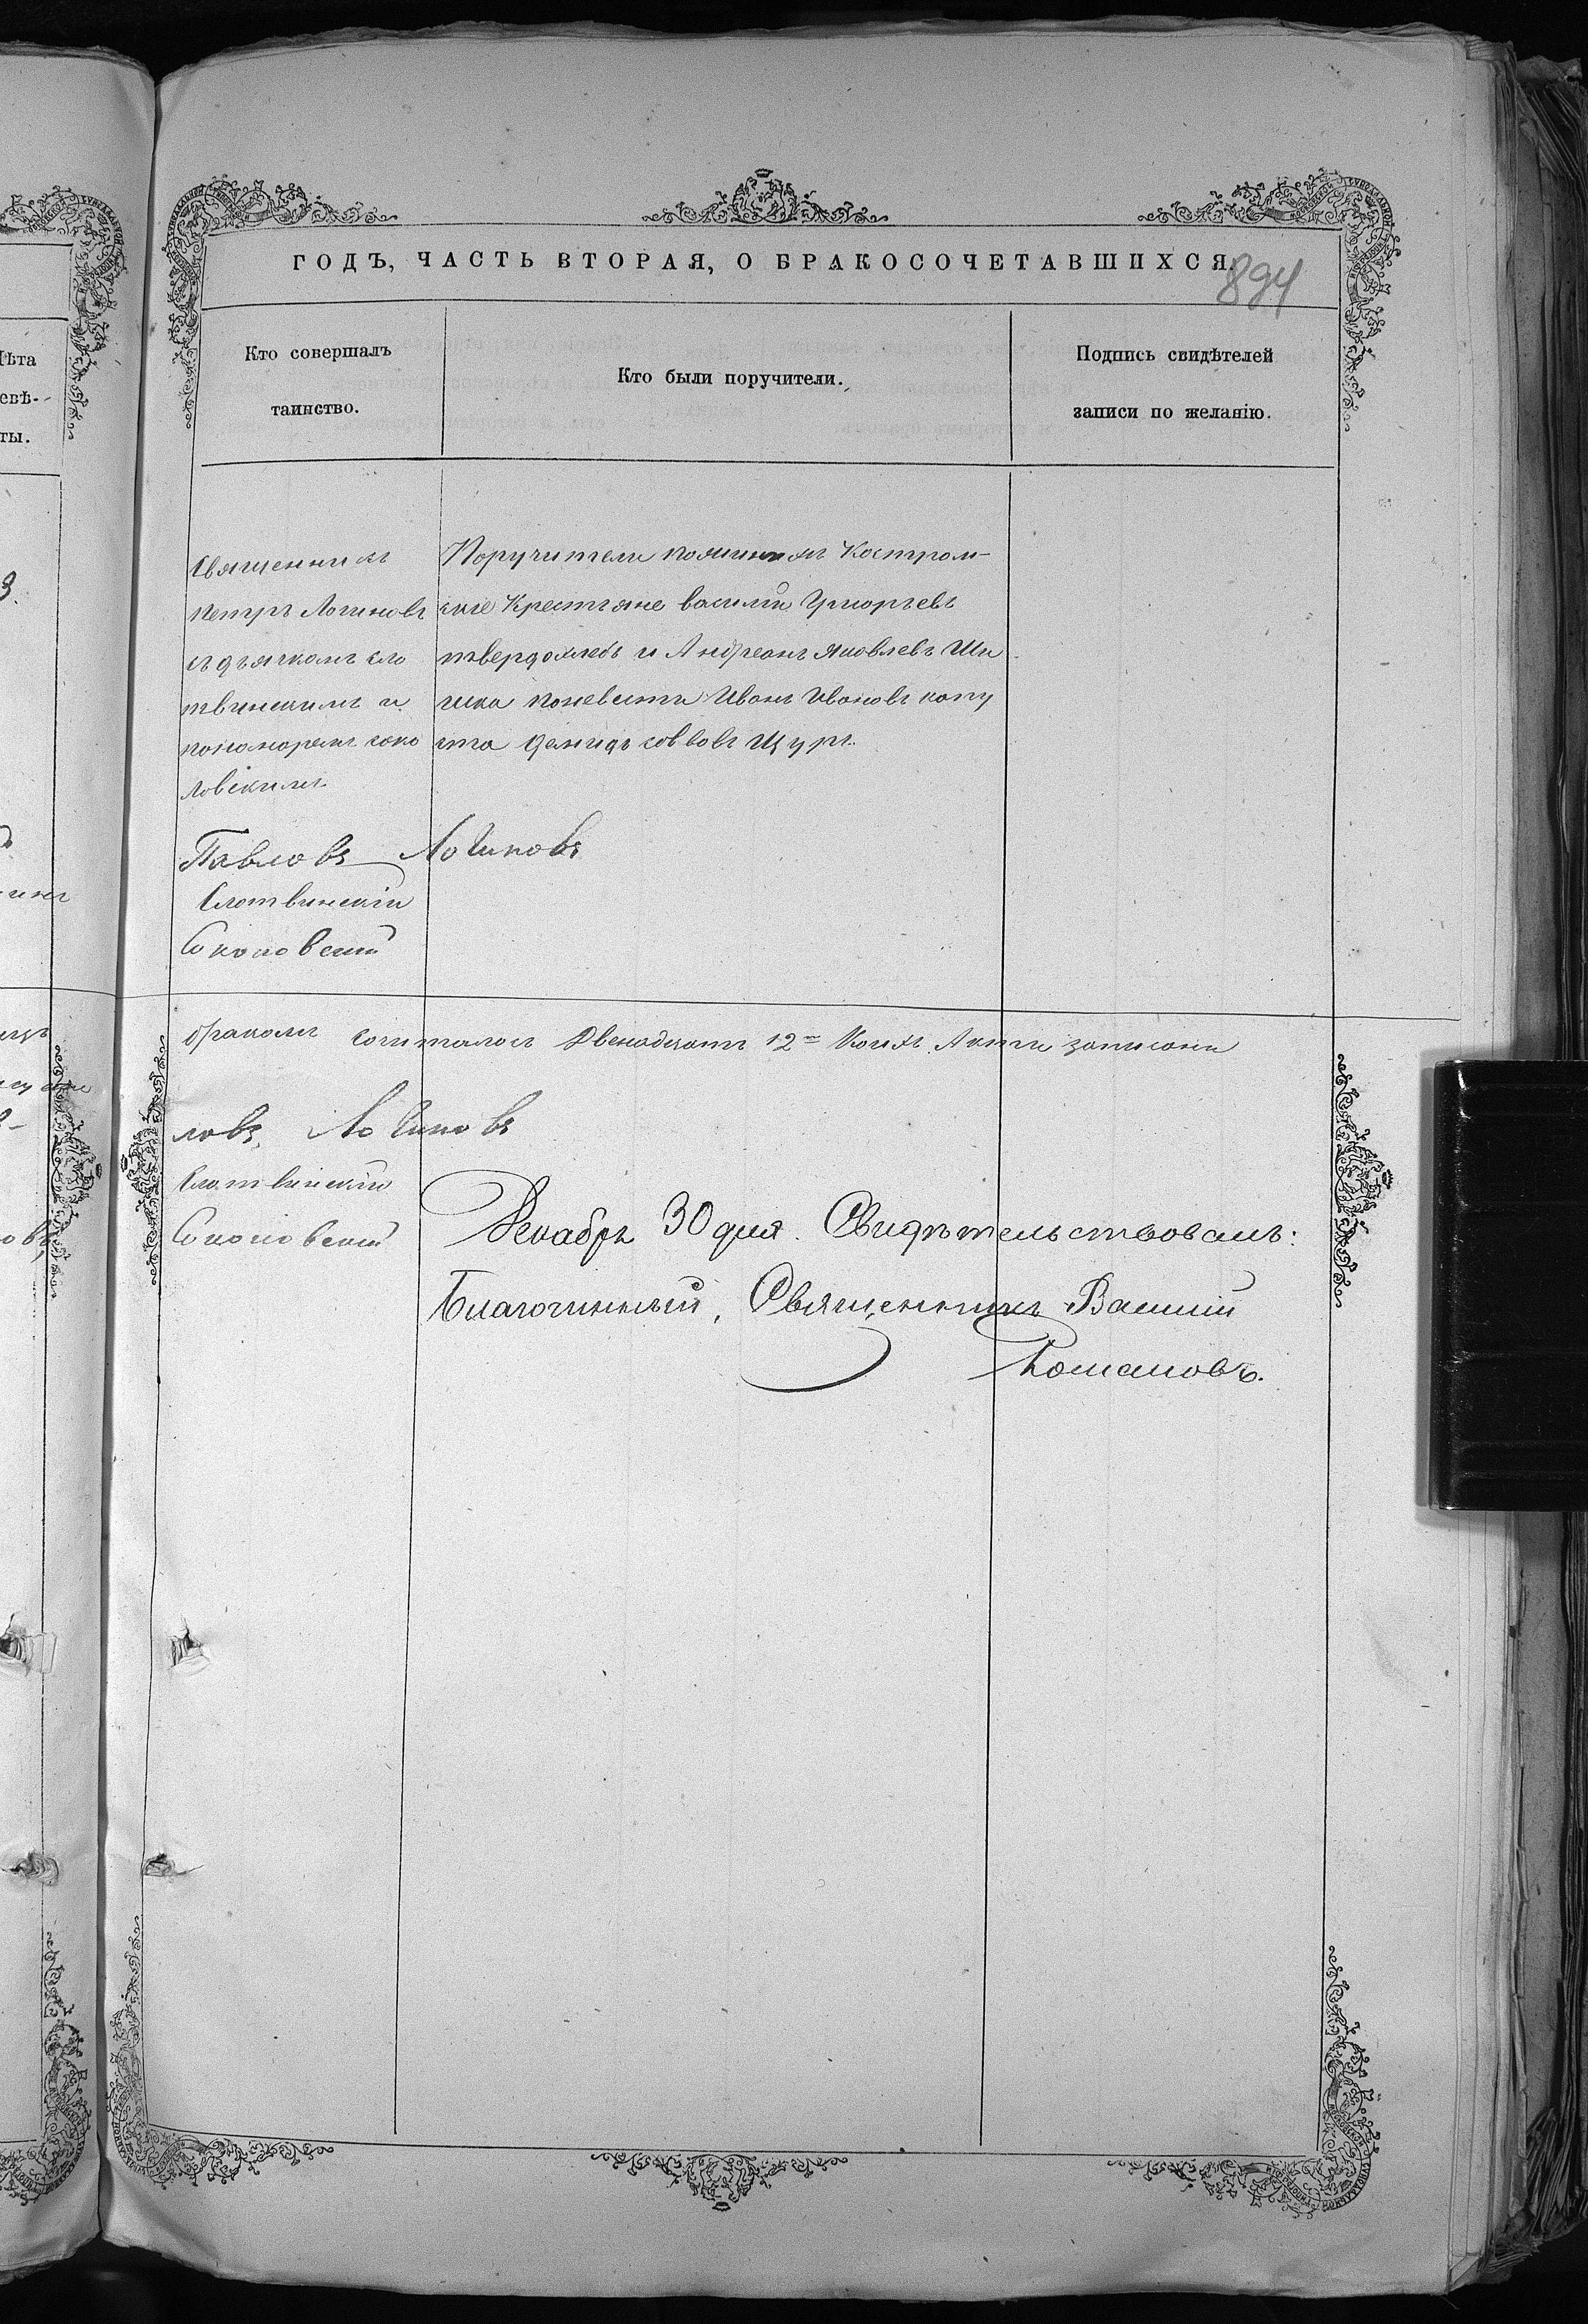 ГОДЪ, ЧАСТЬ ВТОРАЯ, О БРАКОСОЧЕТАВШИХСЯ.
894
Кто совершалъ
таинство.
Кто были поручители.
Подпись свидѣтелей
записи по желанію.
Священникъ
петръ Логиновъ
съ дьячкомъ сло
твинскимъ и
пономаремъ соко
ловскимъ
Поручители по женихѣ Костром-
ские Крестьяне василий Григорьевъ
твердохлебъ и Андреянъ Яковлевъ Ши
шка по невесте Иванъ Ивановъ капу
ста демидъ савовъ Щуръ.
Павловъ Логиновъ
Слотвинскій
Соколовский
бракомъ сочиталось Двенадцать 12 Коихъ Акты записани
ловъ Логиновъ
Слотвинскій
Соколовский
Декабря 30 дня. Свидѣтельствовалъ:
Благочинный, Священникъ Василий
Романовъ.
ѣта
евѣ-
ты.
3.